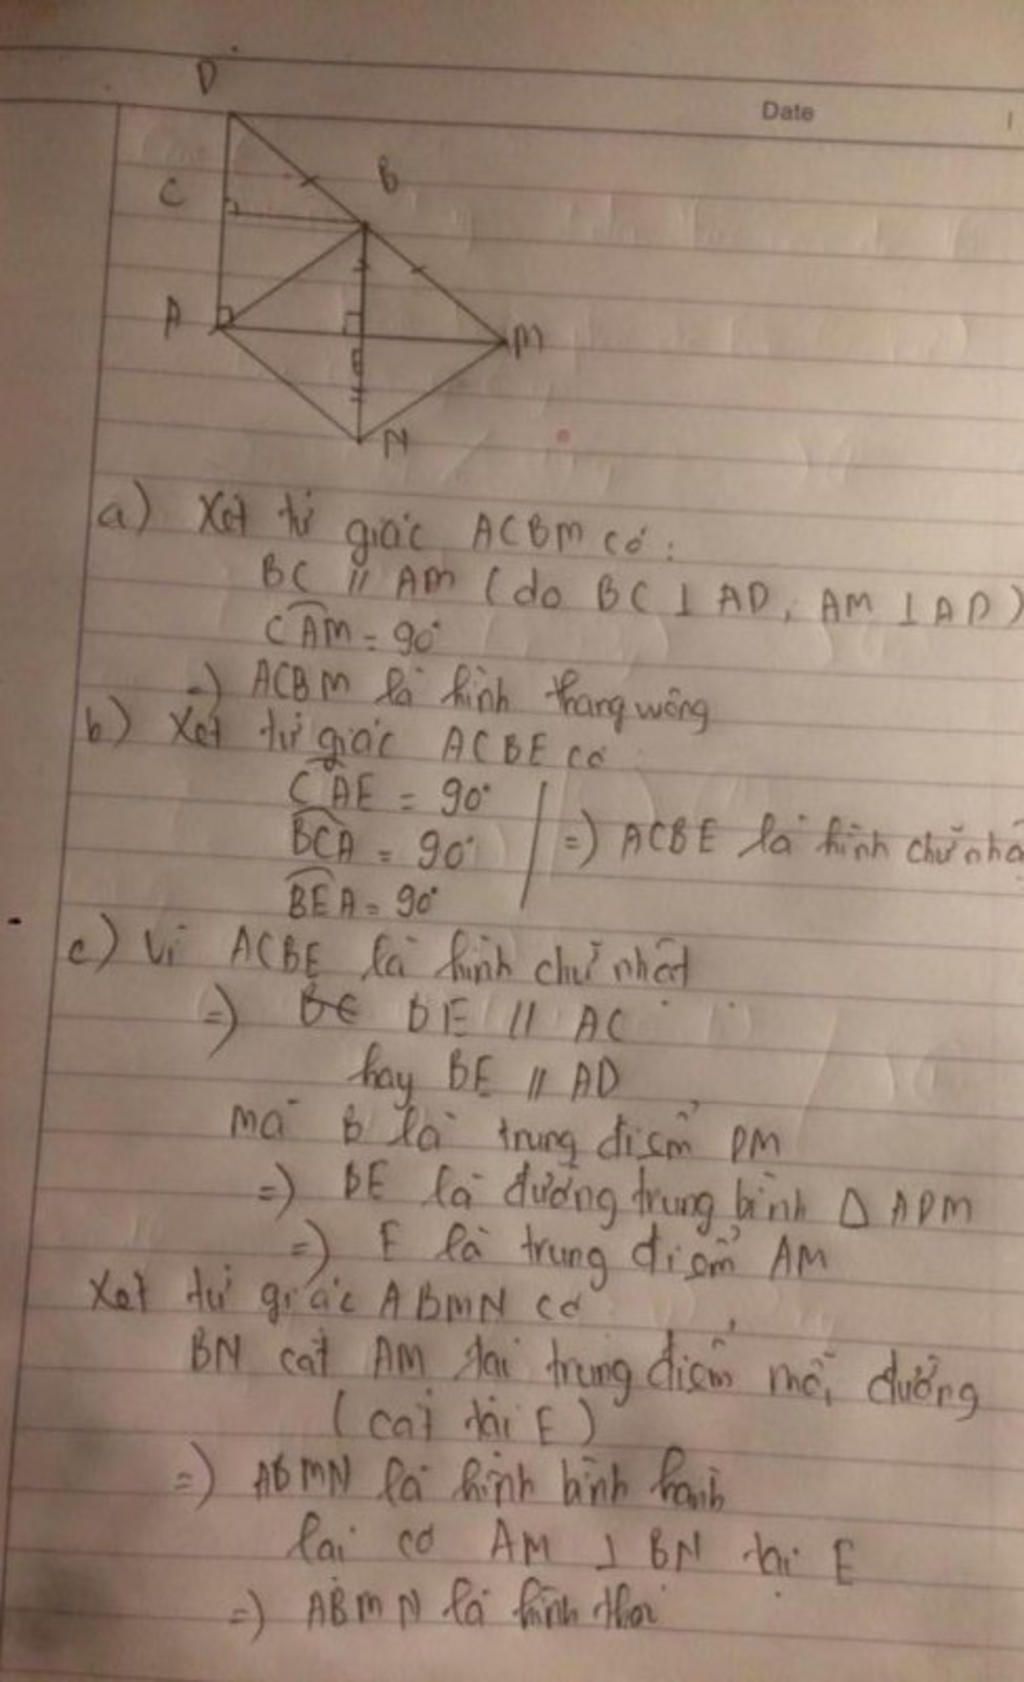 Date
D
C
B
A
M
E
N
a) Xét tứ giác ACBM có:
BC // AM (do BC ⊥ AD, AM ⊥ AD)
CAM = 90°
=) ACBM là hình thang vuông
b) Xét tứ giác ACBE có
CAE = 90°
BCA = 90° =) ACBE là hình chữ nhậ
BEA = 90°
c) Vì ACBE là hình chữ nhật
=) BE // AC
hay BE // AD
mà B là trung điểm DM
=) BE là đường trung bình Δ ADM
=) E là trung điểm AM
Xét tứ giác ABMN có
BN cắt AM tại trung điểm mỗi đường
(cắt tại E)
=) ABMN là hình bình hành
lại có AM ⊥ BN tại E
=) ABMN là hình thoi